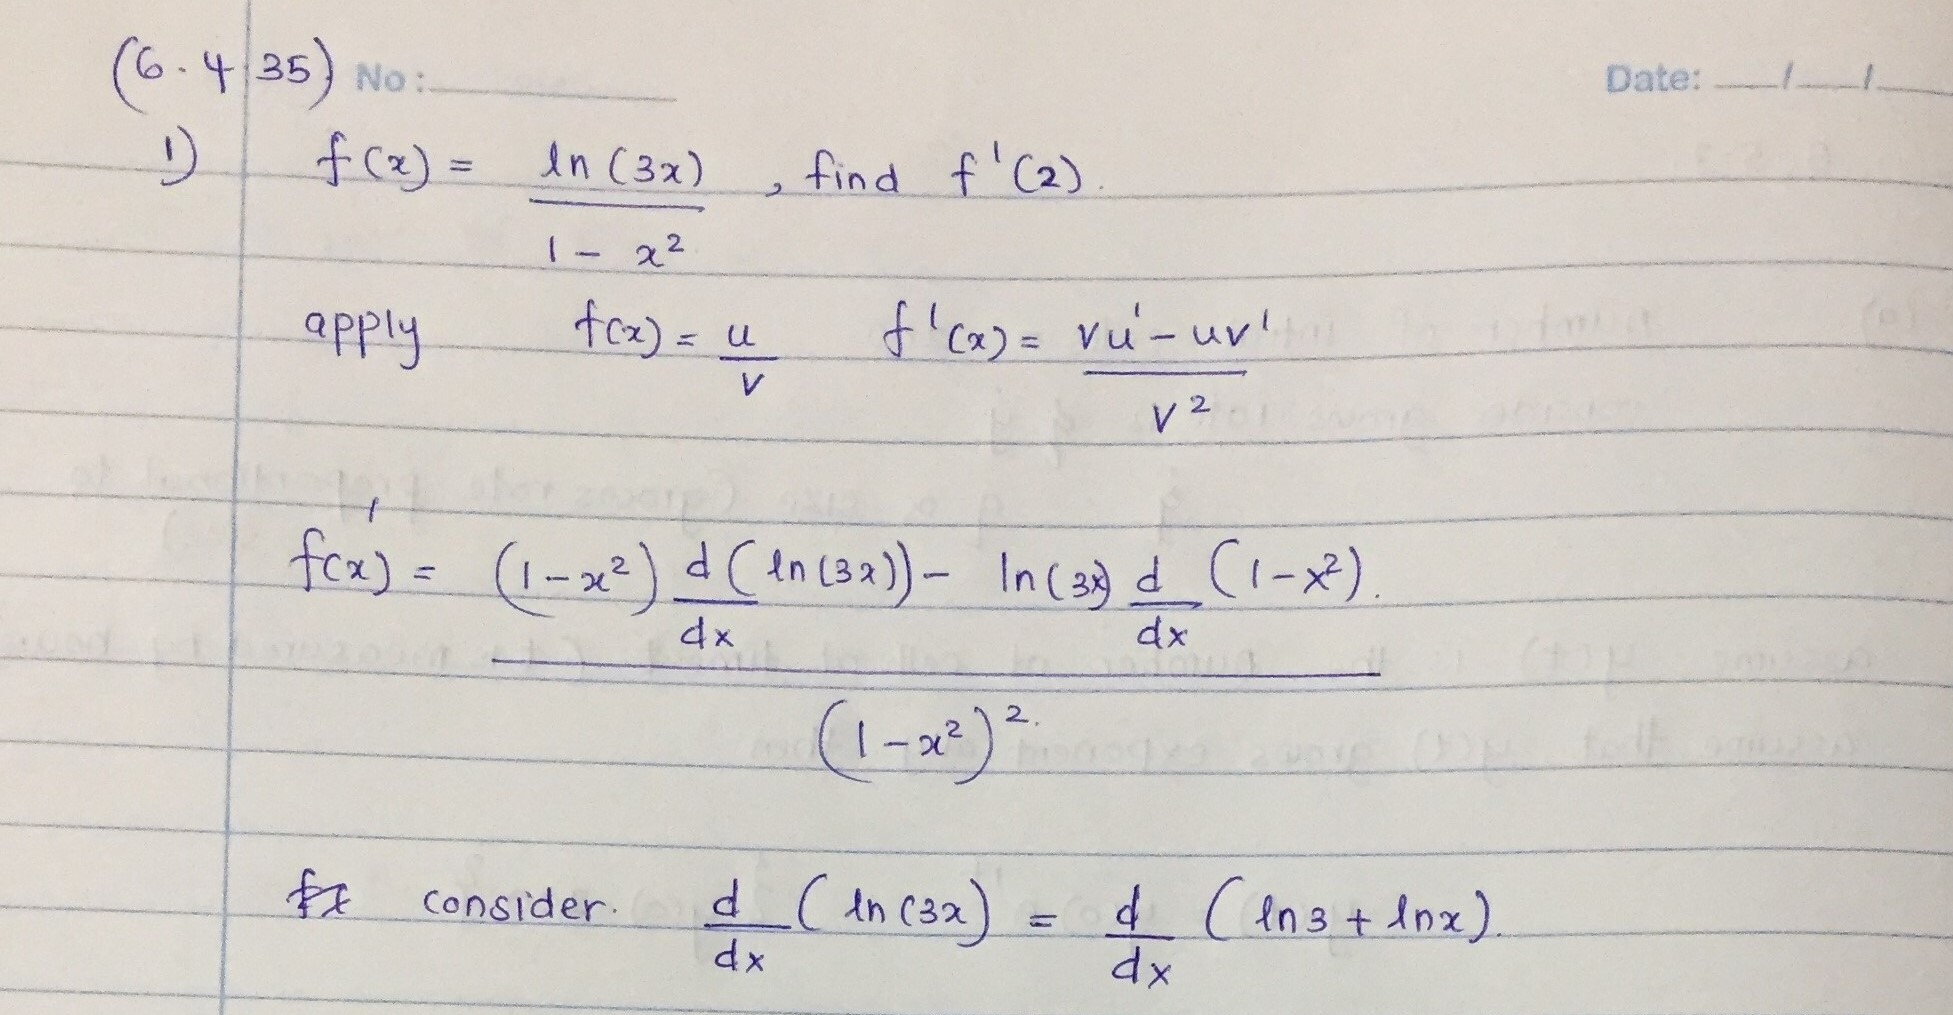 (6.4 35) No: Date: __/__/__
1) f(x) = ln(3x) / 1 - x², find f'(2).
apply f(x) = u/v f'(x) = vu' - uv' / v²
f'(x) = (1-x²) d/dx (ln(3x)) - ln(3x) d/dx (1-x²). / (1-x²)².
consider. d/dx (ln(3x) = d/dx (ln3 + lnx).